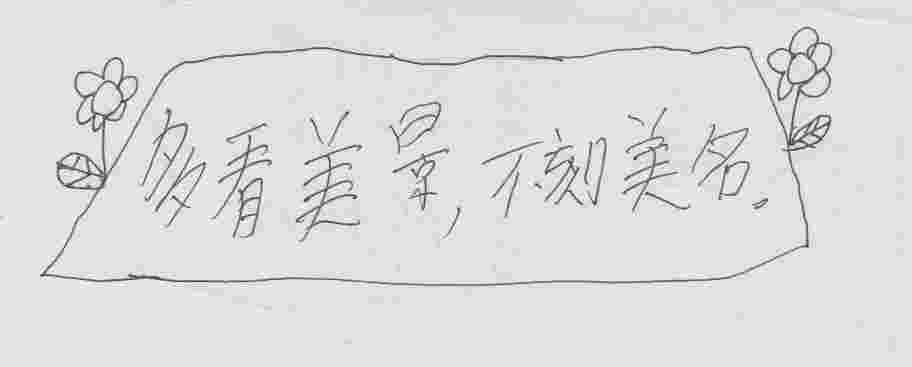 多看美景,不刻美名。